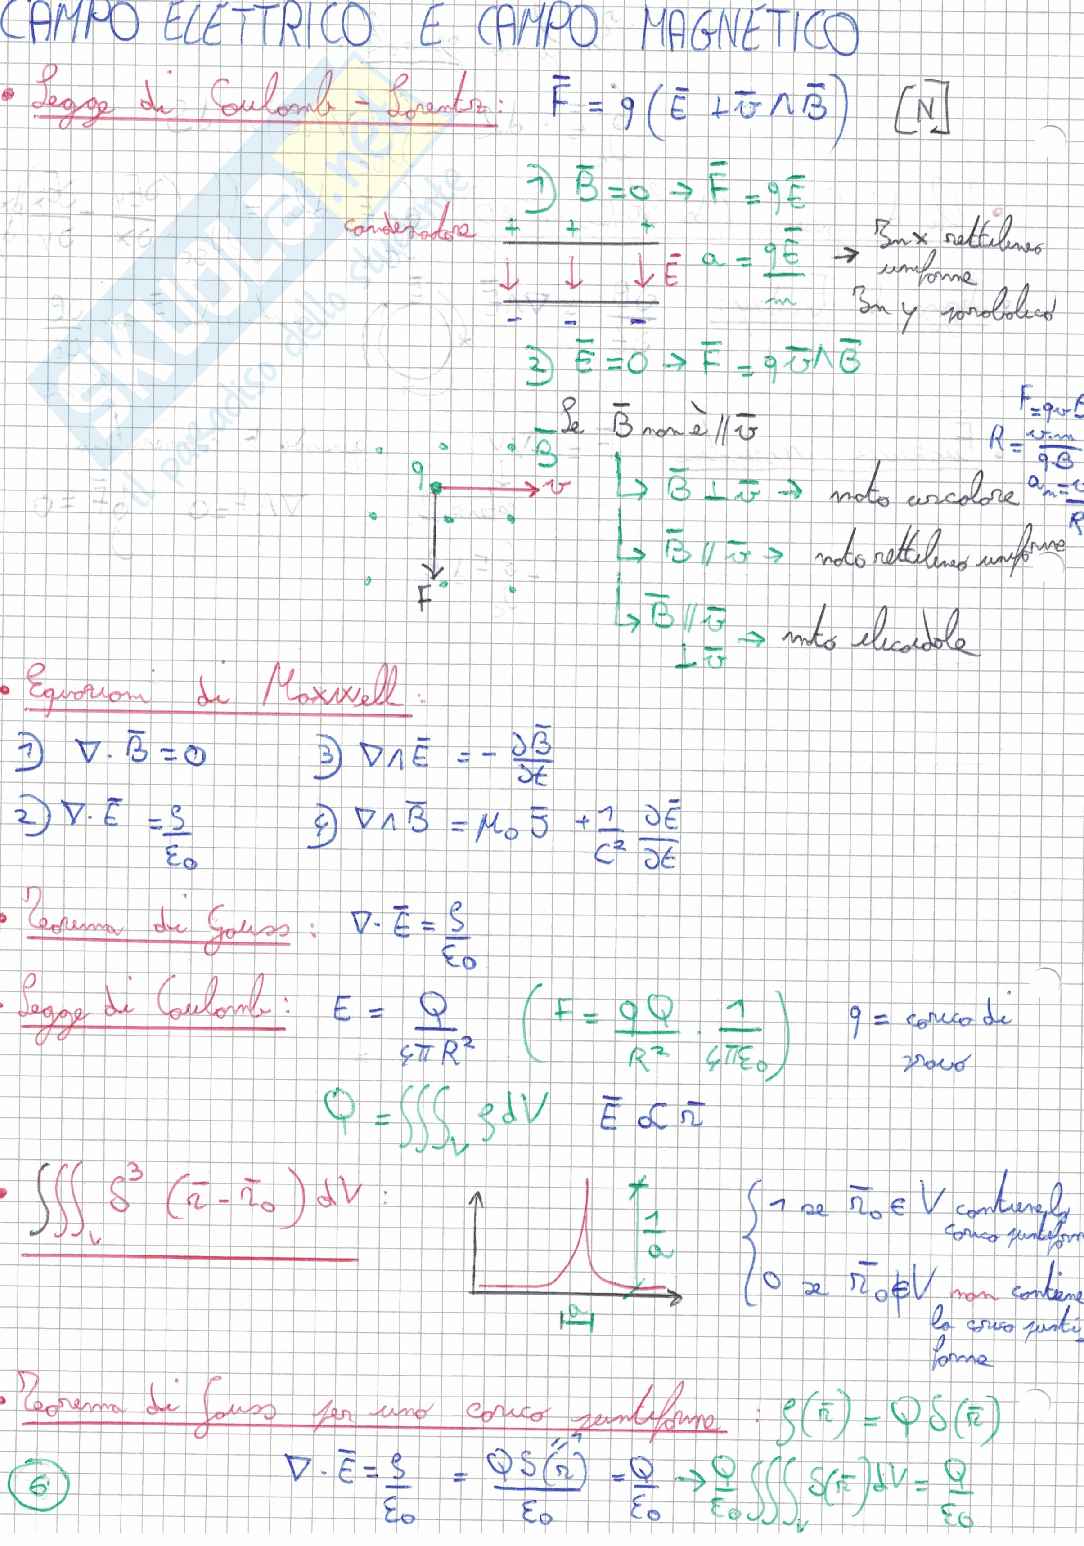 CAMPO ELETTRICO E CAMPO MAGNETICO
• Legge di Coulomb - Lorentz: F̄ = q(Ē + v̄ ∧ B̄) [N]
1) B̄ = 0 → F̄ = qĒ
condensatore + + +
Ē a = qĒ/m → In x rettilineo uniforme
In y parabolico
- - -
2) Ē = 0 → F̄ = q v̄ ∧ B̄
Se B̄ non è // v̄
F = qvB
R = v·m/qB
q B̄ v
↳ B̄ ⊥ v̄ → moto circolare
↳ B̄ // v̄ → moto rettilineo uniforme
F
↳ B̄ // v̄ ⊥ v̄ → moto elicoidale
• Equazioni di Maxwell:
1) ∇·B̄ = 0 3) ∇∧Ē = - ∂B̄/∂t
2) ∇·Ē = ρ/ε₀ 4) ∇∧B̄ = μ₀ J̄ + 1/c² ∂Ē/∂t
• Teorema di Gauss: ∇·Ē = ρ/ε₀
• Legge di Coulomb: E = Q/4πR² (F = qQ/R² · 1/4πε₀) q = carica di prova
Q = ∭_V ρdV Ē ∝ r̄
• ∭_V δ³ (r̄ - r̄₀) dV:
1/a
a
{ 1 se r̄₀ ∈ V contiene la carica puntiforme
0 se r̄₀ ∉ V non contiene la carica puntiforme
• Teorema di Gauss per una carica puntiforme: ρ(r̄) = Q δ(r̄)
∇·Ē = ρ/ε₀ = Qδ(r̄)/ε₀ = Q/ε₀ → Q/ε₀ ∭_V δ(r̄)dV = Q/ε₀
6
SKUOLA.net
il paradiso dello studente